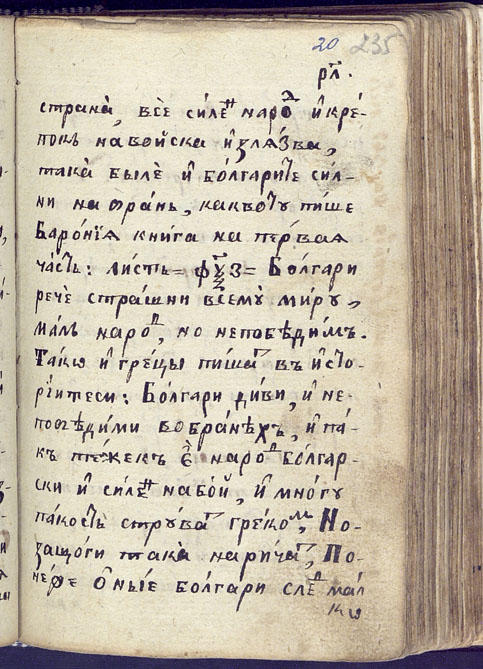 20 235
рл҃.
странà, всè силе́н наро́д и҆ кре́-
покъ на во́йска и҆злѧ́зва,
такà билѐ и҆ бо́лгарите си́л-
ни на бра́нь, каквоту пи́ше
Баро́нїѧ кни́га на пе́рваѧ
ча́сть: ли́стъ = = Бо́лгари
речѐ стра́шни всемꙋ̀ ми́рꙋ,
ма́лъ наро́д, но непобѣди́мъ.
Такѡ и҆ гре́цы пи́шат въ и҆сто́-
рїитеси: Бо́лгари ди́ви, и҆ не-
побѣди́ми во бра́нѣхъ, и҆ па́-
къ те́жекъ є҆̀ наро́д бо́лгар-
ски и҆ силе́н на бо́й, и҆ мно́гꙋ
па́кость стрꙋ́ват гре́ком, Но
защо́ги такà нари́чат, По-
не́же ѻ҆́ныє бо́лгари слѣд ма́л
кѡ